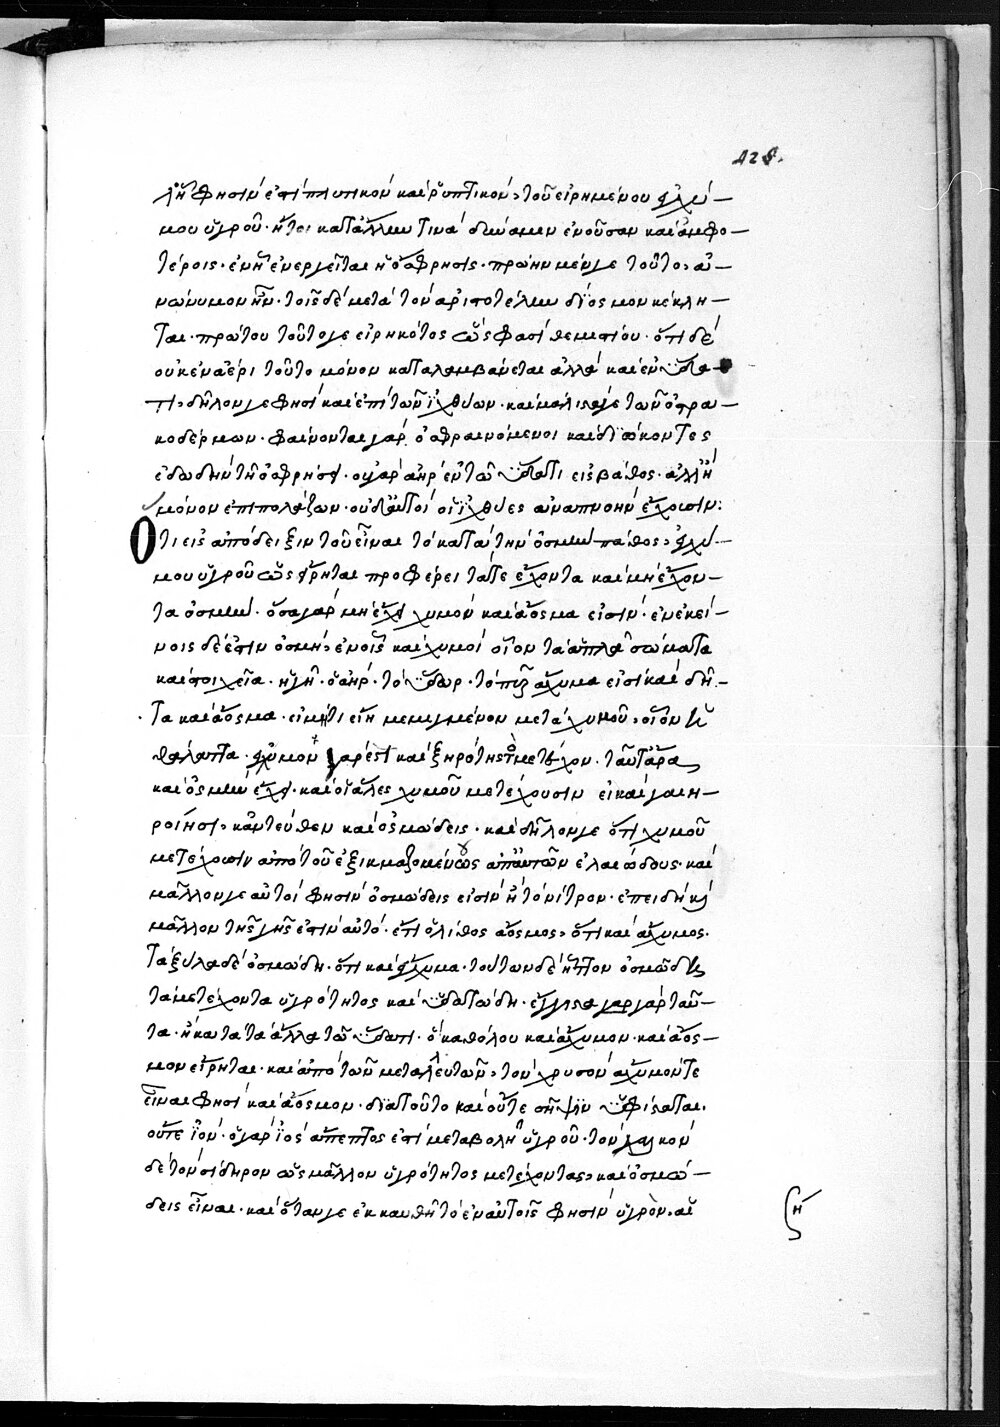 128.
λῇ φησὶν ἐστὶ πλυτικὸν καὶ ῥυπτικὸν, τοῦ εἰρημένου ἐγχύ-
μου ὑγροῦ. ἤτοι κατ' ἄλλην τινὰ δύναμιν ἐνοῦσαν καὶ ἀμφο-
τέροις. ἐν ᾗ ἐνεργεῖται ἡ ὄσφρησις. πρώην μέν γε τοῦτο, ἀ-
νώνυμον ἦν. τοῖς δὲ μετὰ τὸν ἀριστοτέλην δίοσμον κέκλη-
ται. πρώτου τοῦτό γε εἰρηκότος ὥς φασι θεμιστίου. ὅτι δὲ
οὐκ ἐν ἀέρι τοῦτο μόνον καταλαμβάνεται ἀλλὰ καὶ ἐν ὕδα-
τι, δῆλόν γε φησὶ καὶ ἐπὶ τῶν ἰχθύων. καὶ μάλιστά γε τῶν ὀστρα-
κοδέρμων. φαίνονται γὰρ ὀσφραινόμενοι καὶ διώκοντες
ἐδωδὴν τῇ ὀσφρήσει. οὐ γὰρ ἀὴρ ἐν τῷ ὕδατι εἰς βάθος. ἀλλ' ἢ
μόνον ἐπιπολάζων. οὐδ' αὐτοὶ οἱ ἰχθύες ἀναπνοὴν ἔχουσιν:
Ὅτι εἰς ἀπόδειξιν τοῦ εἶναι τὸ κατὰ τὴν ὀσμὴν πάθος, ἐγχύ-
μου ὑγροῦ ὡς εἴρηται προφέρει τά τε ἔχοντα καὶ μὴ ἔχον-
τα ὀσμήν. ὅσα γὰρ μὴ ἔχει χυμὸν καὶ ἄοσμα εἰσίν. ἐν ἐκεί-
νοις δέ ἐστιν ὀσμὴ, ἐν οἷς καὶ χυμοὶ οἷον τὰ ἁπλᾶ σώματα
καὶ στοιχεῖα. ἡ γῆ. ὁ ἀὴρ. τὸ ὕδωρ. τὸ πῦρ ἄχυμα εἰσὶ καὶ δῆ-
τα καὶ ἄοσμα. εἰ μή τι εἴη μεμιγμένον μετὰ χυμοῦ, οἷον ἡ
θάλαττα. ἔγχυμον γάρ ἐστι καὶ ξηρότητος μετέχον. ταῦτ' ἄρα
καὶ ὀσμὴν ἔχει. καὶ οἱ ἅλες χυμοῦ μετέχουσιν εἰ καὶ γαιη-
ροί ἠσι, κἀντεύθεν καὶ ὀσμώδεις. καὶ δῆλόν γε ὅτι χυμοῦ
μετέχουσιν ἀπὸ τοῦ ἐξικμαζομένως ἀπ' αὐτῶν ἐλαιώδους. καὶ
μᾶλλόν γε αὐτοὶ φησὶν ὀσμώδεις εἰσὶν ἢ τὸ νίτρον. ἐπειδὴ καὶ
μᾶλλον τῆς γῆς ἐστὶν αὐτό. ἔτι ὁ λίθος ἄοσμος, ὅτι καὶ ἄχυμος.
Τὰ ξύλα δὲ ὀσμώδη. ὅτι καὶ ἔγχυμα. τούτων δὲ ἧττον ὀσμώδη
τὰ μετέχοντα ὑγρότητος καὶ ὑδατώδη. ἔγγιστα γὰρ γὰρ ταῦ-
τα. ἢ κατὰ τὰ ἄλλα τῷ ὕδατι. ὃ καθόλου καὶ ἄχυμον. καὶ ἄοσ-
μον εἴρηται. καὶ ἀπὸ τῶν μεταλλευτῶν, τὸν χρυσὸν ἄχυμόν τε
εἶναι φησὶ καὶ ἄοσμον. διὰ τοῦτο καὶ οὔτε σῆψιν ὑφίσταται.
οὔτε ἰόν. ὁ γὰρ ἰὸς ἄπεπτος ἐστὶ μεταβολὴ ὑγροῦ. τὸν χαλκὸν
δὲ τὸν σίδηρον ὡς μᾶλλον ὑγρότητος μετέχοντας, καὶ ὀσμώ-
δεις εἶναι. καὶ ὅταν γε ἐκκαυθῇ τὸ ἐν αὐτοῖς φησὶν ὑγρὸν. αἱ